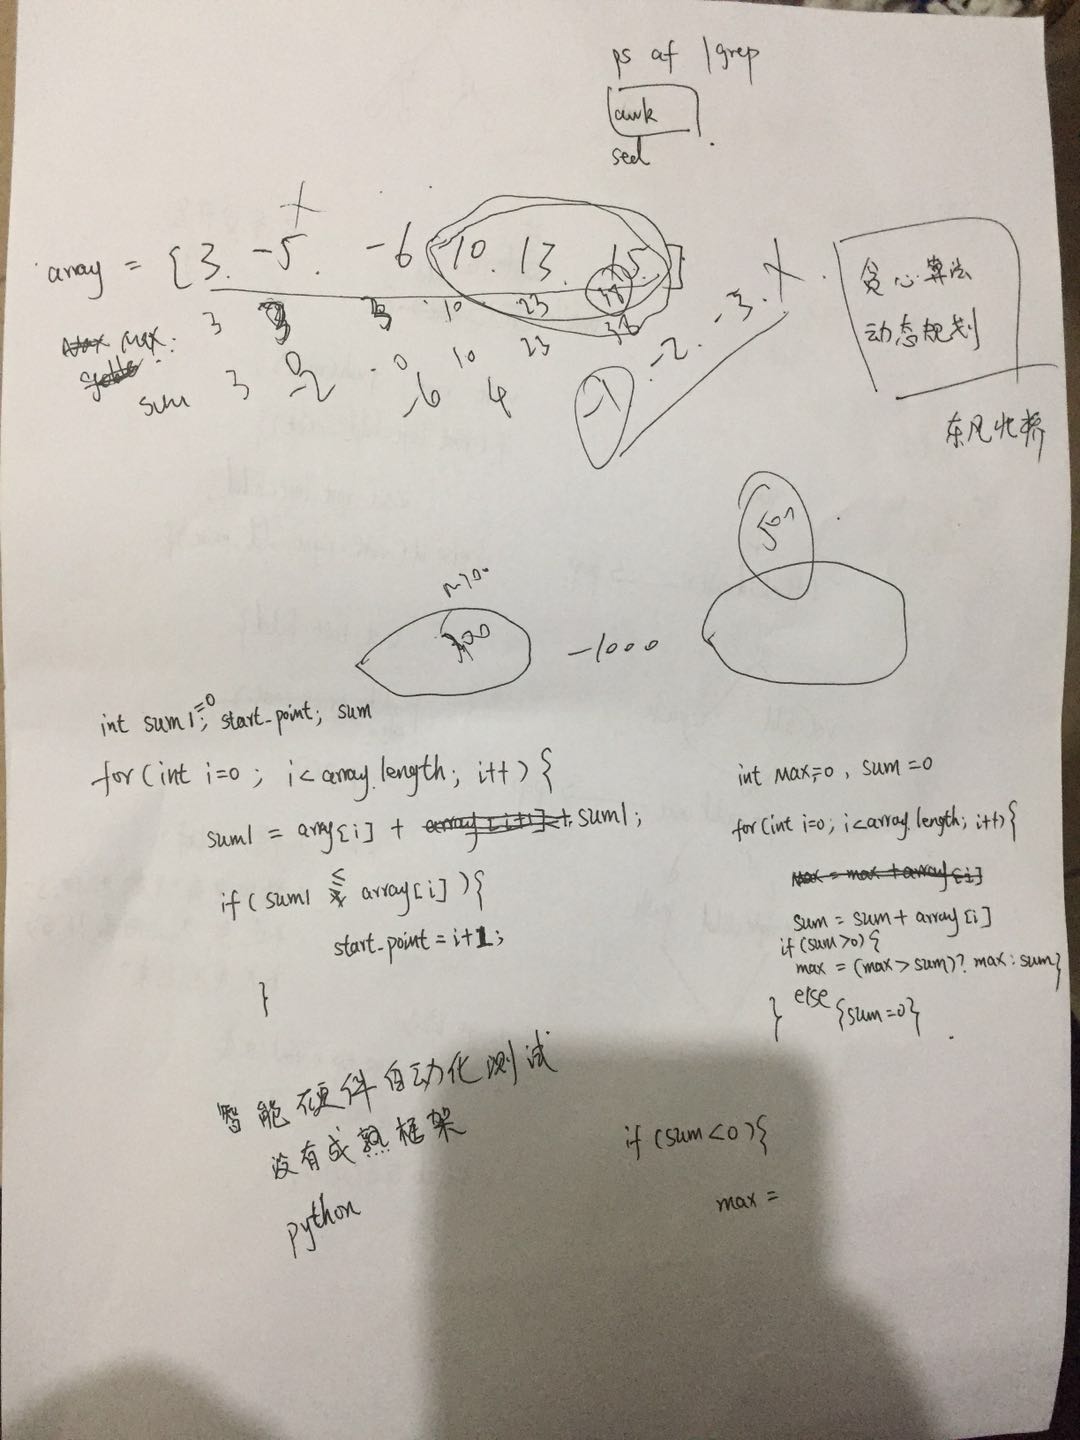 ps af | grep
awk
sed
array = {3. -5. -6 10. 13. 15.}
贪心算法
动态规划
max: 3 10 23 38
0 0 10 23
sum 3 -2 -6 4
-1 -2. -3.
东风北桥
500
-1000
int sum1=0; start_point; sum
for(int i=0; i<array.length; i++){
sum1 = array[i] + sum1;
if(sum1 ≤ array[i]){
start_point = i+1;
}
int max=0, sum=0
for(int i=0; i<array.length; i++){
max = max + array[i]
sum = sum + array[i]
if(sum>0){
max = (max>sum)? max:sum}
} else {sum=0}
智能硬件自动化测试
没有成熟框架
python
if(sum<0){
max =